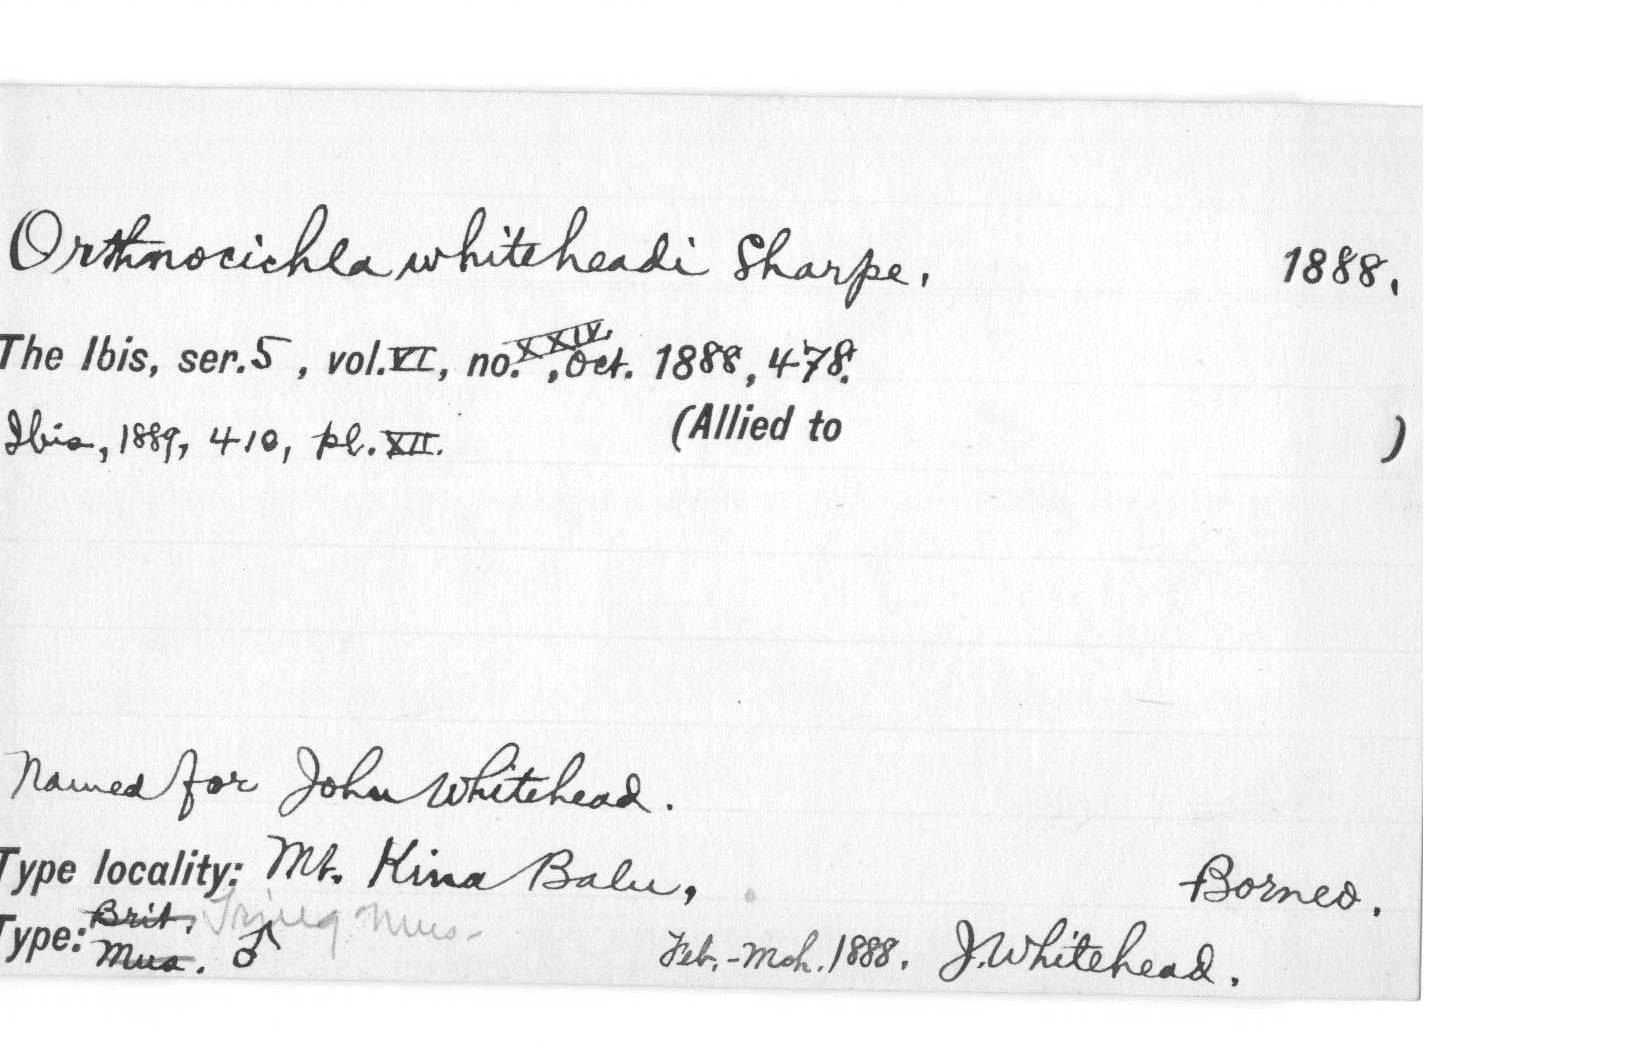 Orthnocichla whiteheadi Sharpe. 1888.
The Ibis, ser. 5, vol. VI, no. XXIV, Oct. 1888, 478.
Ibis, 1889, 410, pl. XII. (Allied to )
Named for John Whitehead.
Type locality: Mt. Kina Balu, Borneo.
Type: Brit. Mus. ♂ Tring Mus. Feb.-Mch. 1888. J. Whitehead.